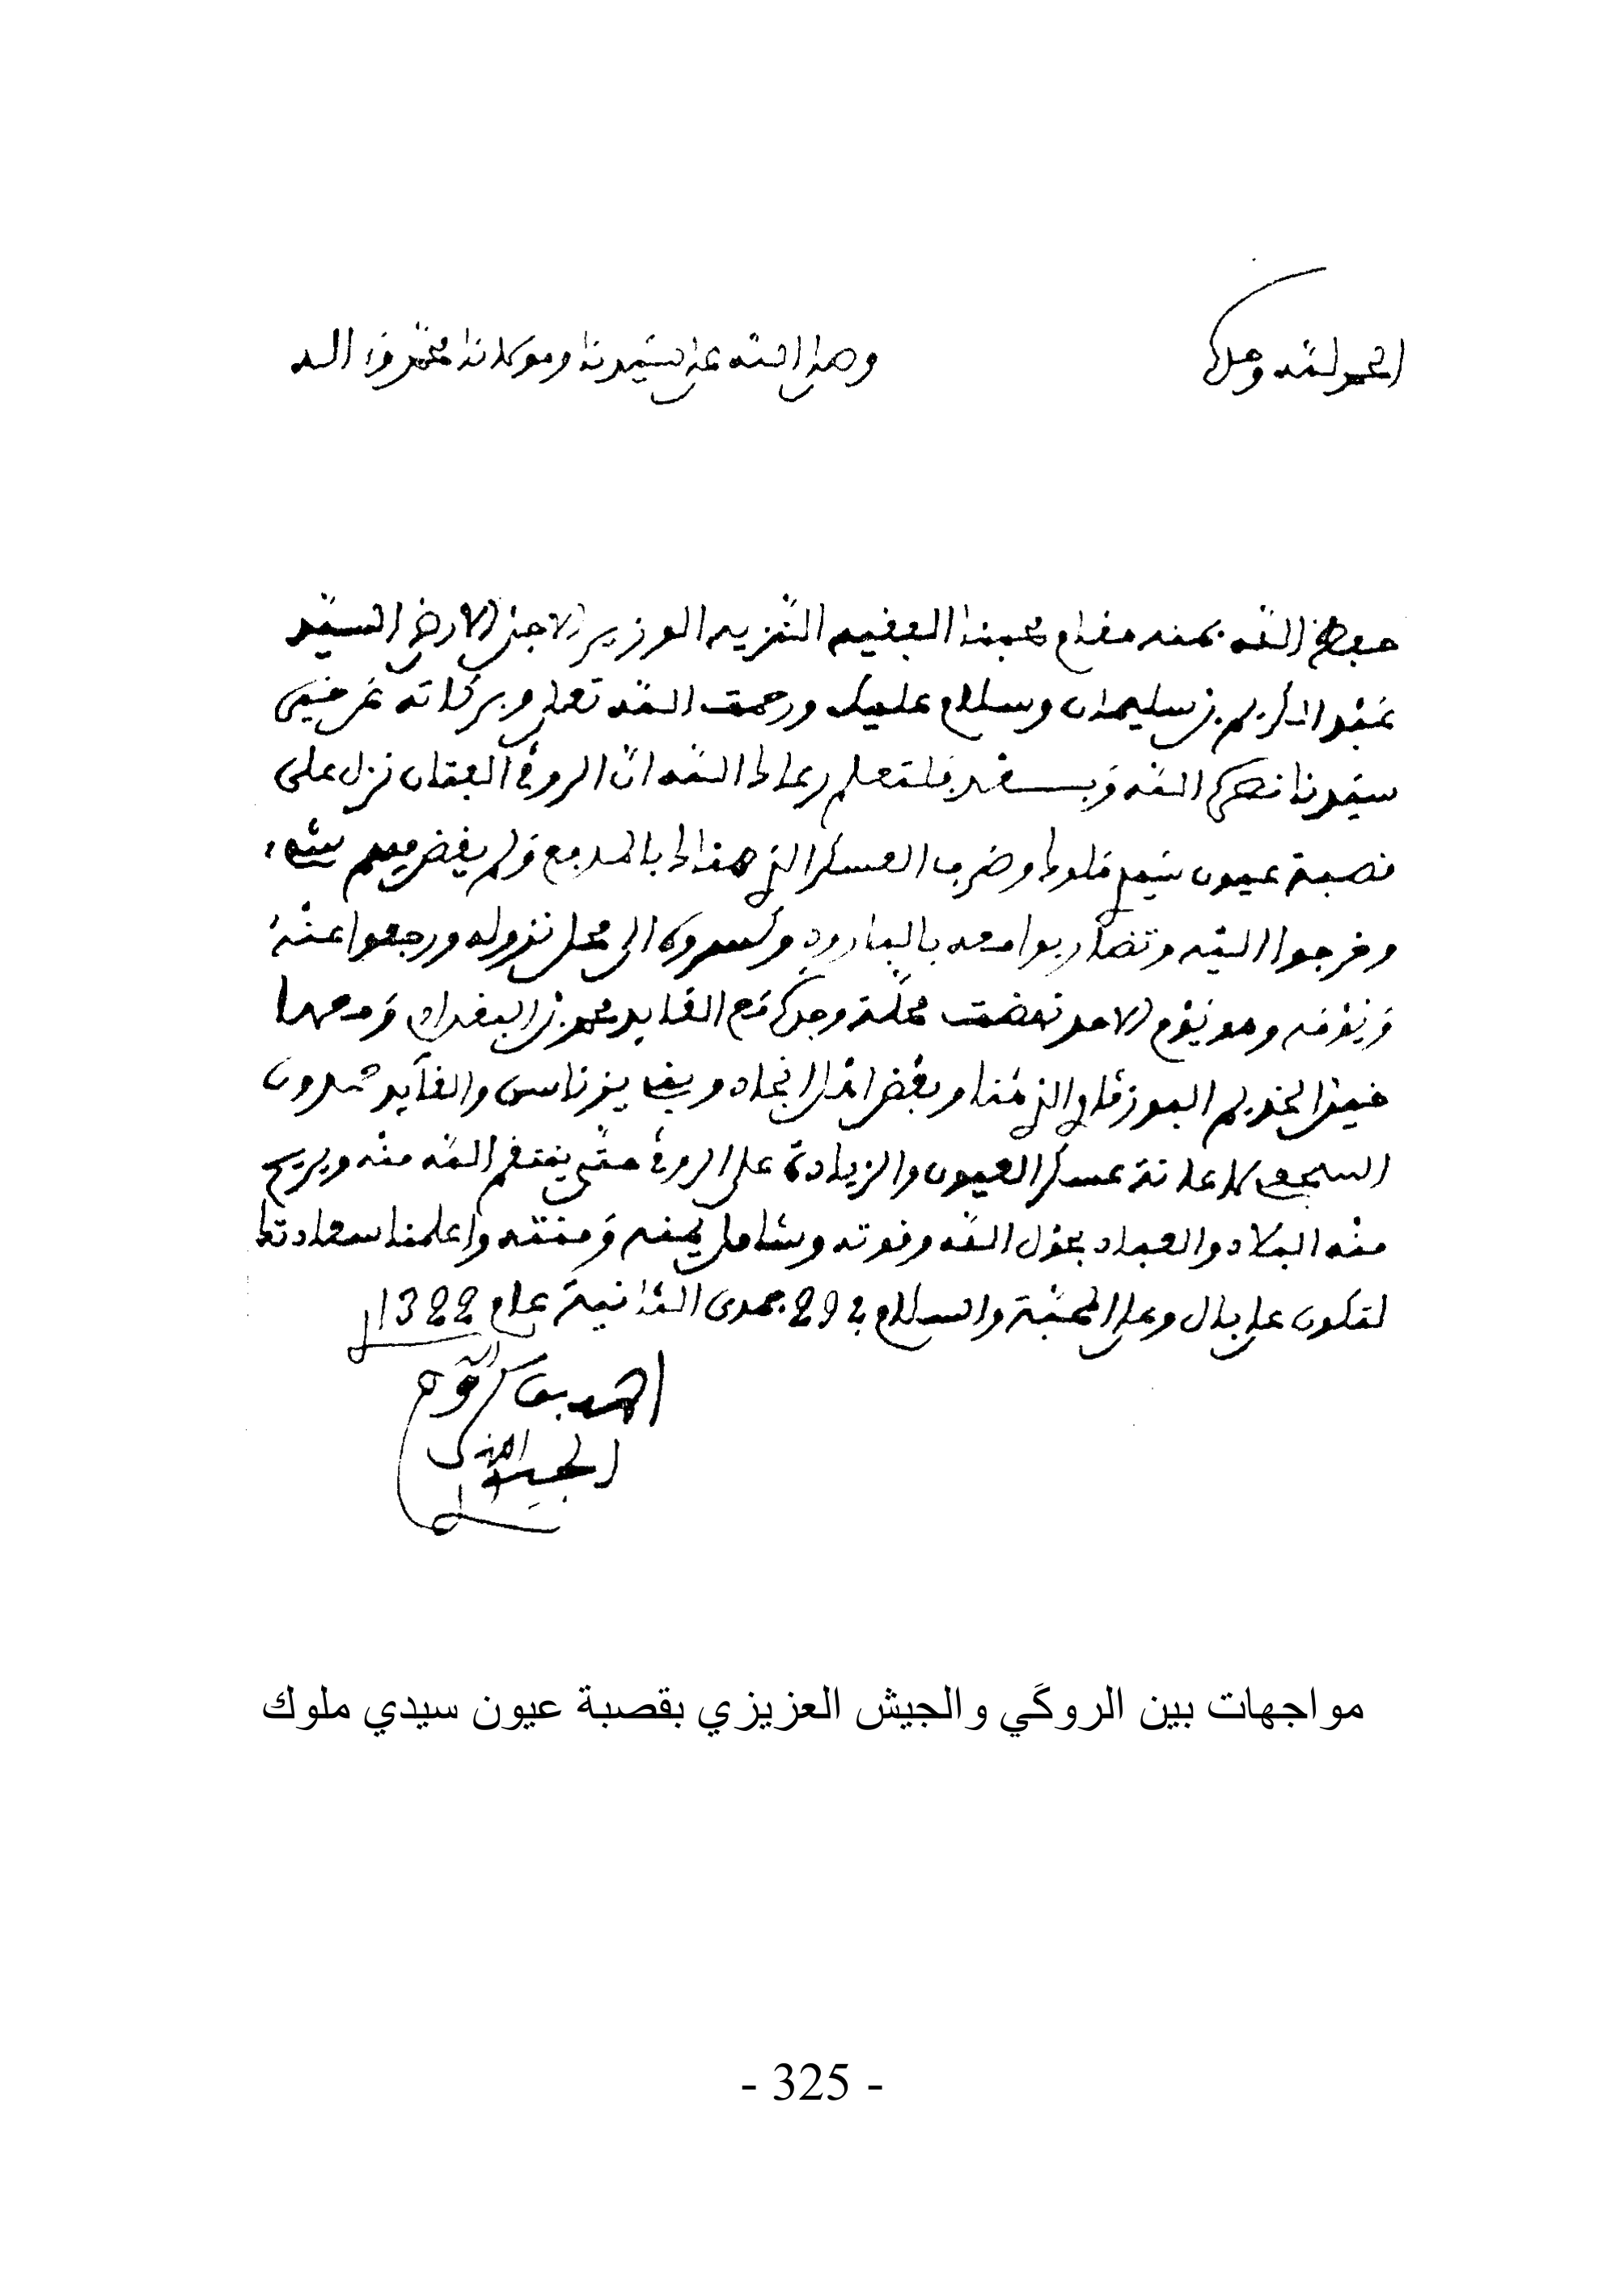 الحمد لله وحده
وصلى الله على سيدنا ومولانا محمد وءاله
حفظ الله بمنه مقام محبنا الفقيه النزيه الوزير الاجل الارضى السيد
عبد الكريم بن سليمان وسلام عليك ورحمت الله تعلى وبركاته عن خير
سيدنا نصره الله وبعد فلتعلم رعاك الله ان الروكي الفتان نزل على
قصبة عيون سيدي ملوك وضرب العسكر الذي هناك بالمدبع ولم يقض فيهم شيء
وخرجوا اليه وتضاربوا معه بالبارود وكسروه الى محل نزوله ورجعوا عشية
ويومه وهو يوم الاحد نهضت محلة وجدة مع القايد محمد بن البغدادي ومعها
خيل الخديم البوزكاوي الذي هنا وبعض اهل انجاد وبني يزناسن والقايد حمدون
السجعي لاعانة عسكر العيون والزيادة على الروكي حتى ينتقم الله منه ويريح
منه البلاد والعباد بحول الله وقوته وشامل يمنه ومنته واعلمنا سعادتك
لتكون على بال وعلى المحبة والسلام في 29 جمدى الثانية عام 1322
احمد بن
مواجهات بين الروگي والجيش العزيزي بقصبة عيون سيدي ملوك
- 325 -